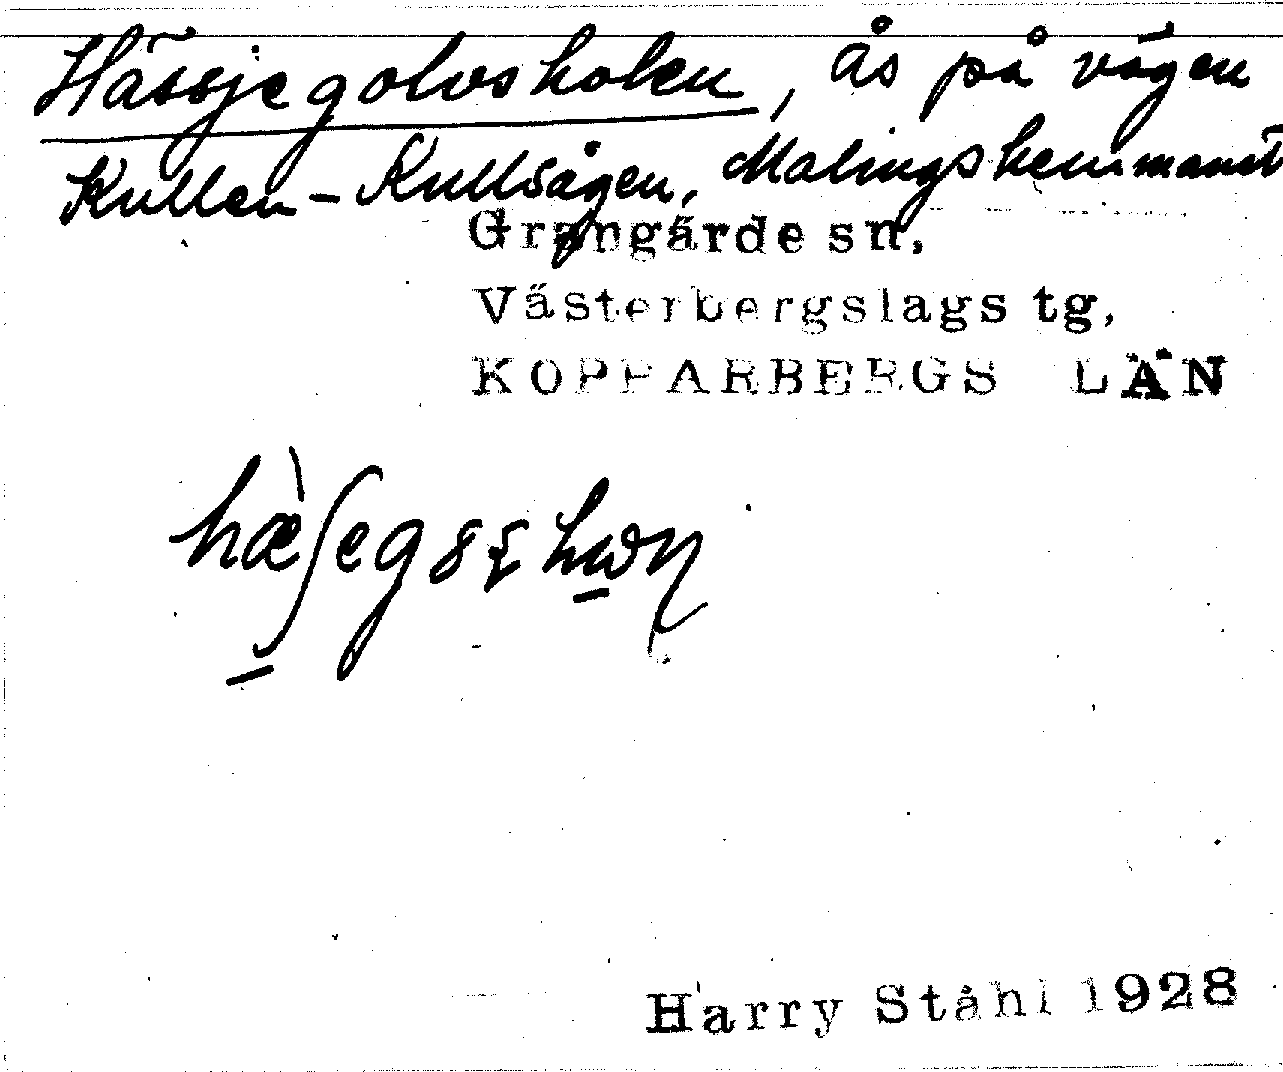 Hässjegolvsholen, ås på vägen
Kullen - Kullsågen, Malingshemmanet
Grangärde sn,
Västerbergslags tg,
KOPPARBERGS LÄN
Harry Ståhl 1928